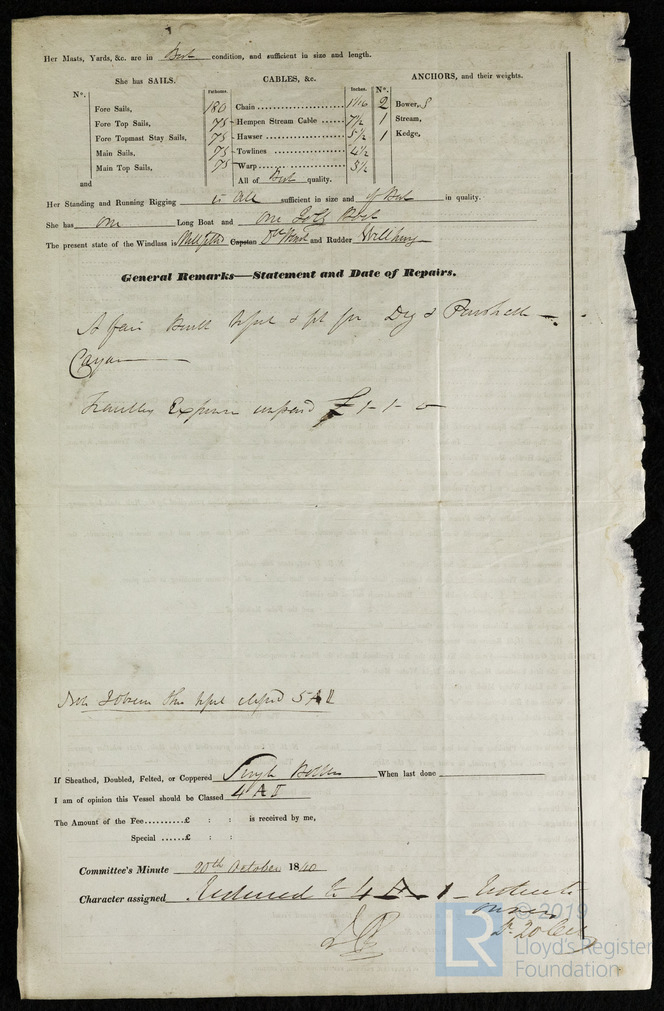 Her Masts, Yards, &c. are in Best condition, and sufficient in size and length.
She has SAILS. CABLES, &c. ANCHORS, and their weights.
N°. Fathoms. Inches. N°.
Fore Sails, 180 Chain 1 1/16 2 Bower,
Fore Top Sails, 75 Hempen Stream Cable 7 1/2 1 Stream,
Fore Topmast Stay Sails, 75 Hawser 5 1/2 1 Kedge,
Main Sails, 75 Towlines 4 1/2
Main Top Sails, 75 Warp 3 1/2
and All of Best quality.
Her Standing and Running Rigging is All sufficient in size and of Best in quality.
She has one Long Boat and one Jolly Boat
The present state of the Windlass is Well fitted Capstan and Rudder Well hung
General Remarks—Statement and Date of Repairs.
A fair Built & fit for Dry & Perishable
Cargo
Travelling Expenses unpaid £1-1-0
this 5 A
If Sheathed, Doubled, Felted, or Coppered Single Bottom When last done
I am of opinion this Vessel should be Classed 4 A I
The Amount of the Fee..........£ : : is received by me,
Special ......£ : :
Committee's Minute 20th October 1840
Character assigned 4 A 1
© 2019
LR
Lloyd's Register
Foundation